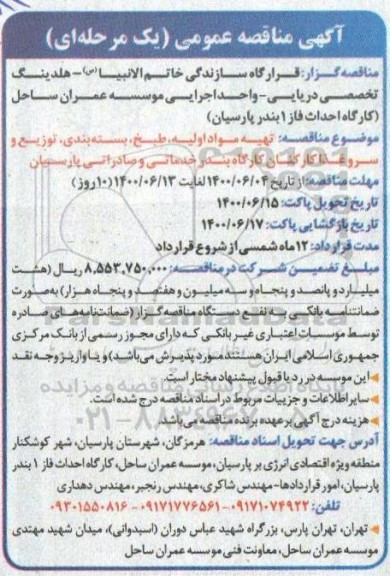 آگهی مناقصه عمومی (یک مرحله‌ای)
مناقصه‌گزار: قرارگاه سازندگی خاتم الانبیا (ص) - هلدینگ
تخصصی دریایی- واحد اجرایی موسسه عمران ساحل
(کارگاه احداث فاز ۱ بندر پارسیان)
موضوع مناقصه: تهیه مواد اولیه، طبخ، بسته‌بندی، توزیع و
سرو غذا کارکنان کارگاه بندر خدماتی و صادراتی پارسیان
مهلت مناقصه: از تاریخ ۱۴۰۰/۰۶/۰۴ لغایت ۱۴۰۰/۰۶/۱۳ (۱۰ روز)
تاریخ تحویل پاکت: ۱۴۰۰/۰۶/۱۵
تاریخ بازگشایی پاکت: ۱۴۰۰/۰۶/۱۷
مدت قرارداد: ۱۲ ماه شمسی از شروع قرارداد
مبلغ تضمین شرکت در مناقصه: ۸,۵۵۳,۷۵۰,۰۰۰ ریال (هشت
میلیارد و پانصد و پنجاه و سه میلیون و هفتصد و پنجاه هزار) به صورت
ضمانتنامه بانکی به نفع دستگاه مناقصه گزار (ضمانت‌نامه‌های صادره
توسط موسسات اعتباری غیر بانکی که دارای مجوز رسمی از بانک مرکزی
جمهوری اسلامی ایران هستند مورد پذیرش می‌باشد) و یا واریز وجه نقد
این موسسه در رد یا قبول پیشنهاد مختار است.
سایر اطلاعات و جزییات مربوط در اسناد مناقصه درج شده است.
هزینه درج آگهی بر عهده برنده مناقصه می‌باشد.
آدرس جهت تحویل اسناد مناقصه: هرمزگان، شهرستان پارسیان، شهر کوشکنار
منطقه ویژه اقتصادی انرژی بر پارسیان، موسسه عمران ساحل، کارگاه احداث فاز ۱ بندر
پارسیان، امور قراردادها- مهندس شاکری، مهندس رنجبر، مهندس دهداری
تلفن: ۰۹۱۷۱۰۷۴۹۲۲- ۰۹۱۷۱۷۷۶۵۶۱ - ۰۹۳۰۱۵۵۰۸۱۶
تهران، تهران پارس، بزرگراه شهید عباس دوران (اسبدوانی)، میدان شهید مهتدی
موسسه عمران ساحل، معاونت فنی موسسه عمران ساحل